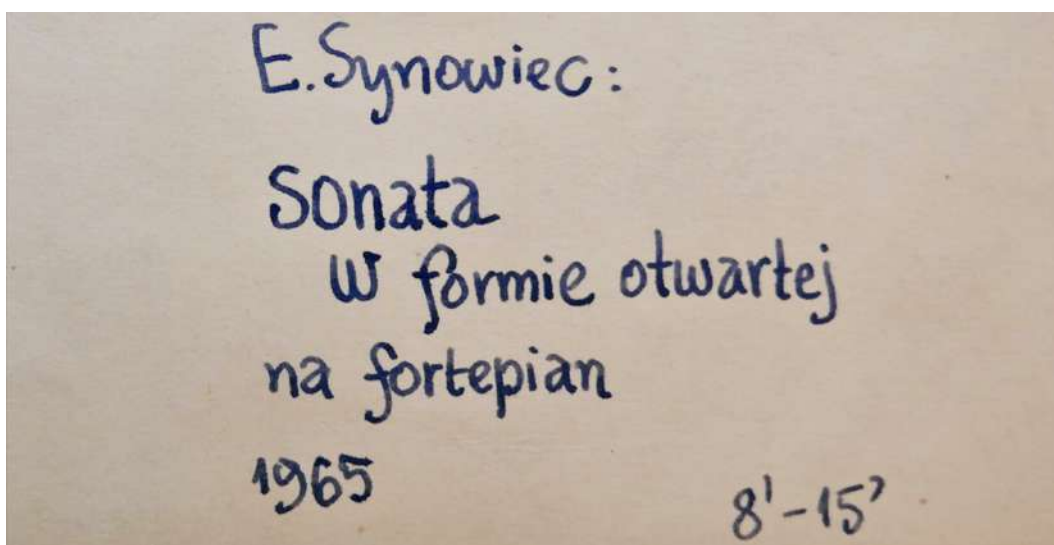 E. Synowiec:
Sonata
w formie otwartej
na fortepian
1965
8'-15'